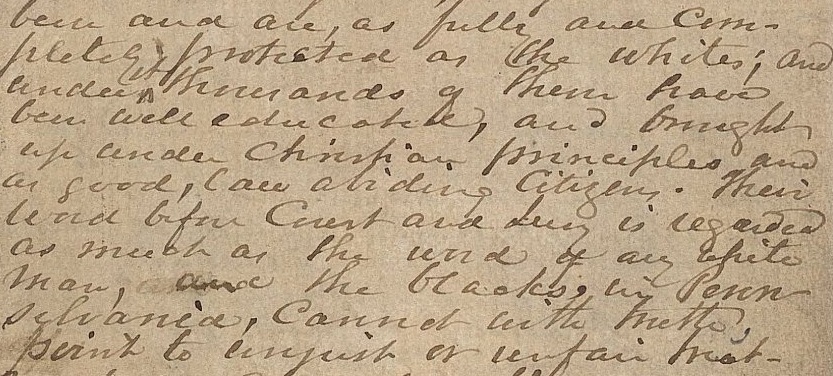 been and are, as fully and Com-
pletely protected as the whites; and
under it thousands of them have
been well educated, and brought
up under Christian principles and
as good, law abiding Citizens. Their
word before Court and Jury is regarded
as much as the word of any white
man, and the blacks in Penn-
sylvania, Cannot with truth,
point to unjust or unfair treat-